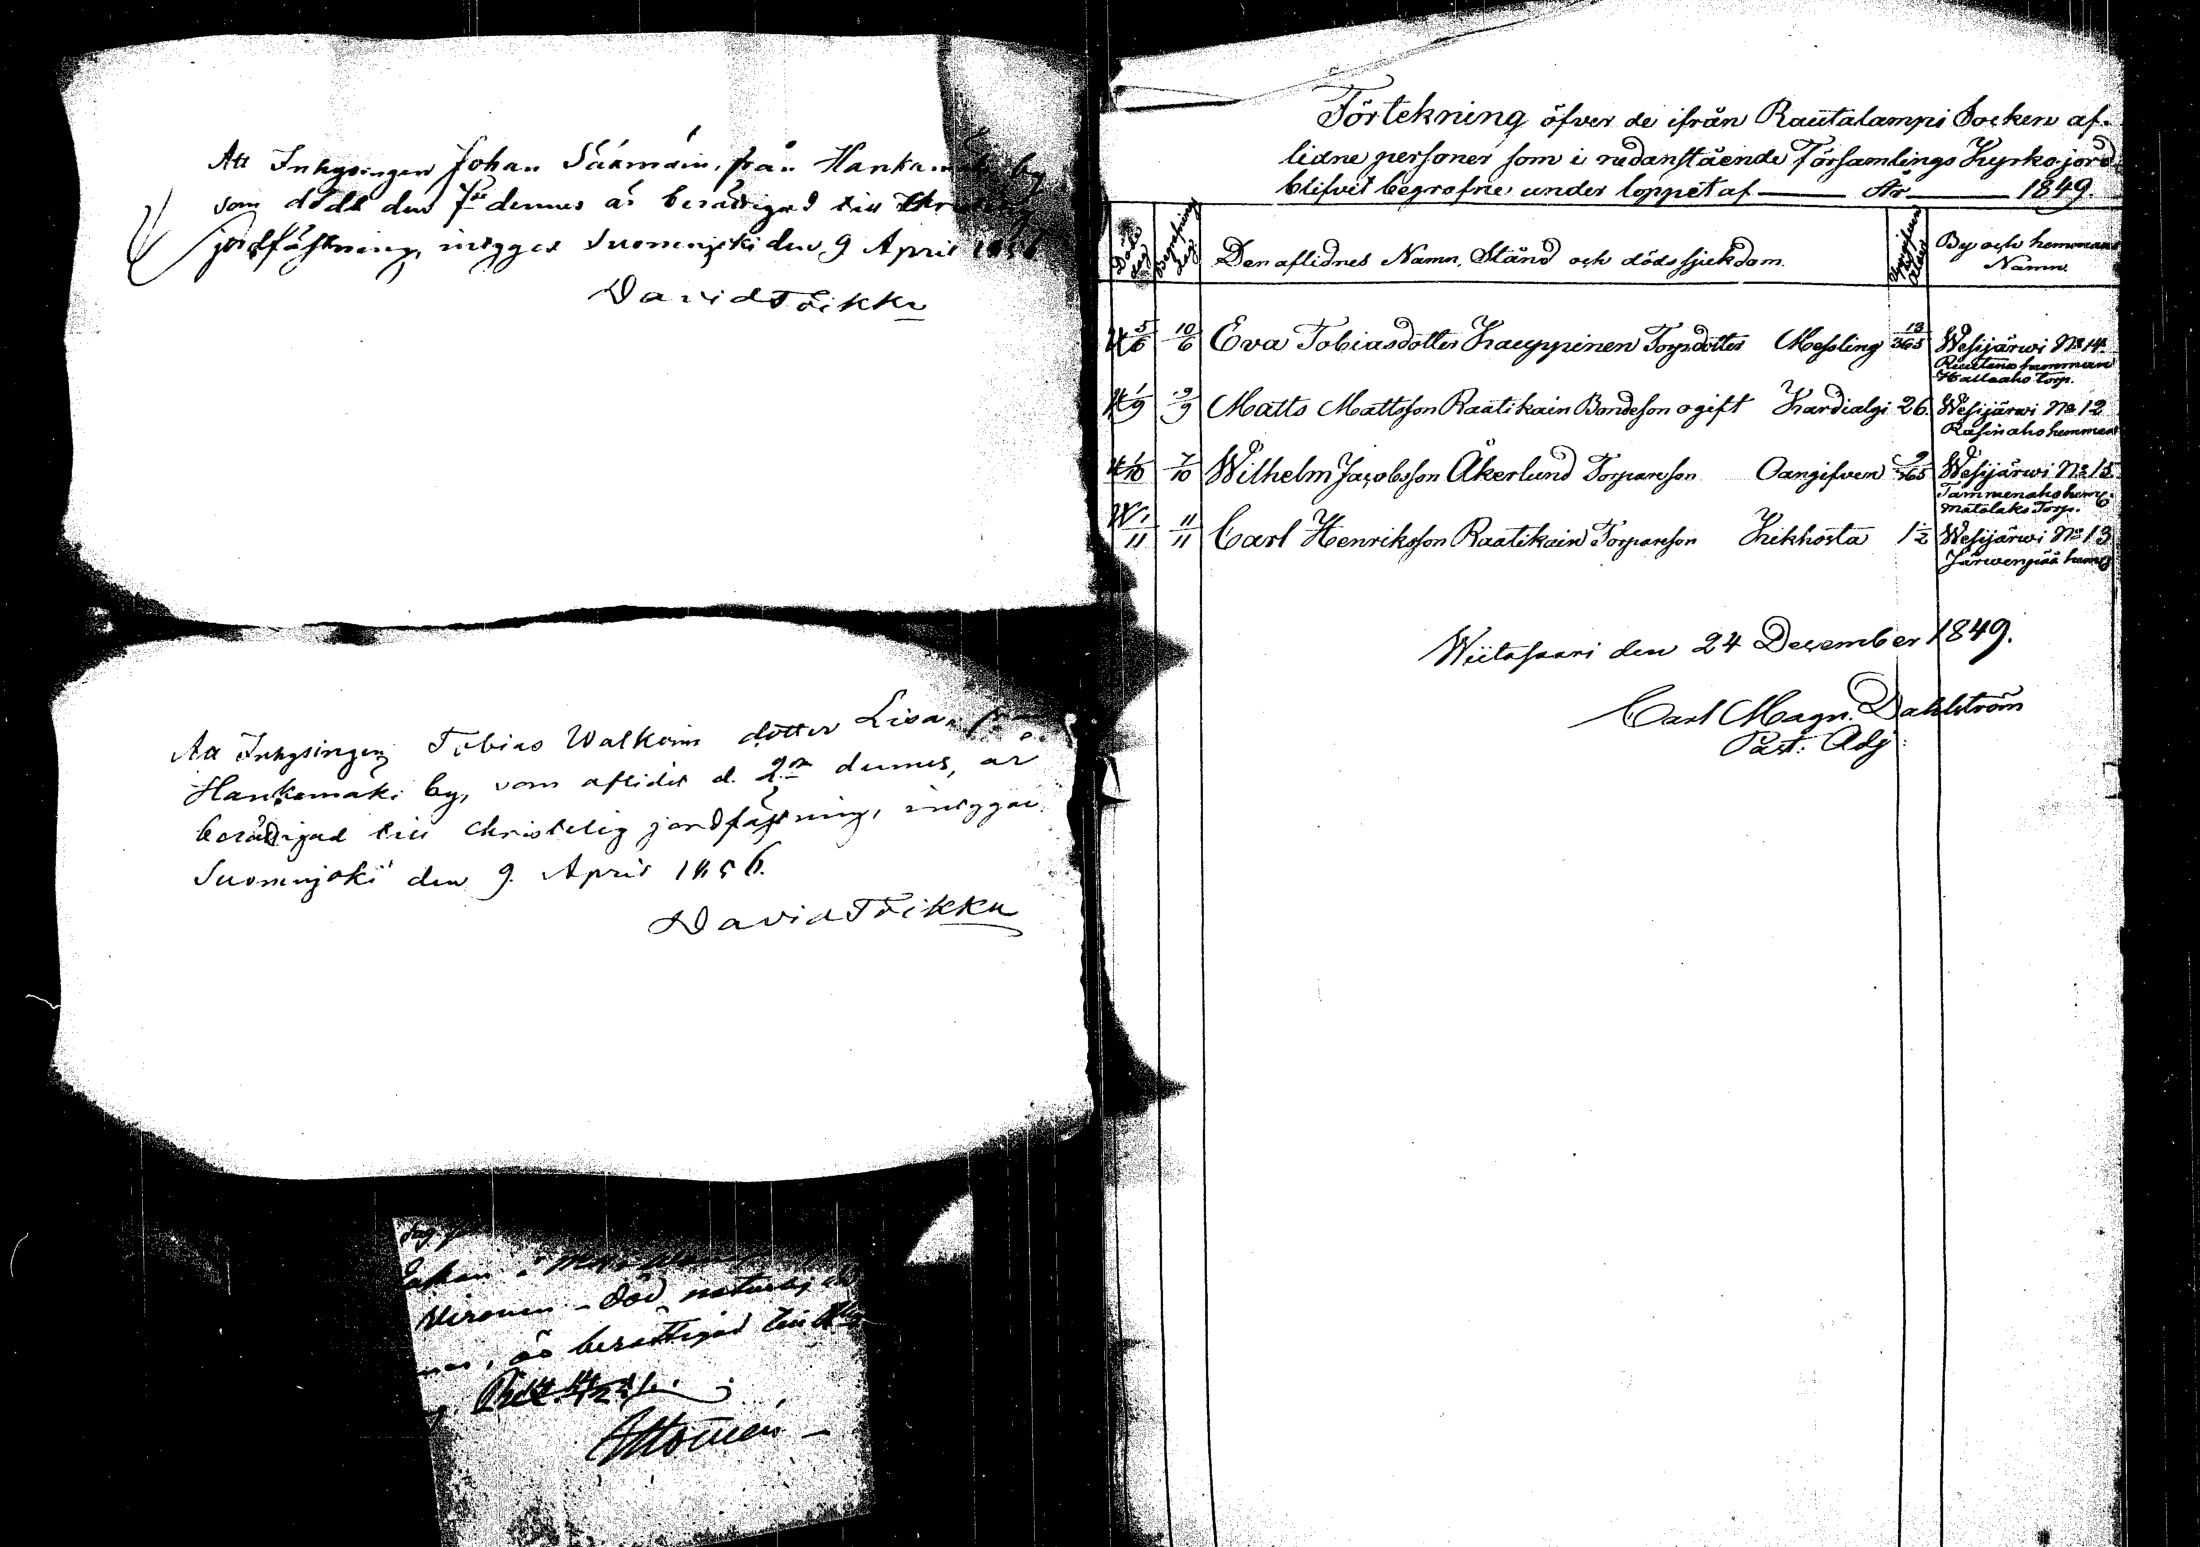 Att Inhysingen Johan Säämäin, från Hankamäki by
som dödt den 7de dennes är berättigad till Christelig
jordfästning, intygges Suonenjoki den 9 April 1856
David Toikka
Att Inhysingen Tobias Walkoins dotter Lisa, från
Hankamäki by, som aflidit d. 2dn dennes, är
berättigad till Christelig jordfästning, intygges
Suonenjoki den 9. April 1856.
David Toikka
Hironen - död naturlig
är berättigad till
Förtekning öfver de ifrån Rautalampi Socken af-
lidne personer som i nedanstående Församlings Kyrkojord
blifvit begrafne under loppet af — År — 1849.
Döds dag Begrafnings dag Den aflidnes Namn, Stånd och dödssjukdom. Ålder By och hemmans
Namn.
5/6 10/6 Eva Tobiasdotter Kauppinen Torpdotter Messling 13/365 Wesijärwi No 14.
Hallaaho torp.
1/9 9/9 Matts Mattsson Raatikain Bondeson ogift Kardialgi 26. Wesijärwi No 12
Räsinaho hemman
1/10 7/10 Wilhelm Jacobsson Åkerlund Torpareson Oangifven 9/365 Wesijärwi No 15
Tammenaho hem:
Mätälaho Torp.
1/11 11/11 Carl Henriksson Raatikain Torpareson Kikhosta 1 1/2 Wesijärwi No 13
Järwenpää hem:
Wiitasaari den 24 December 1849.
Carl Magn. Dahlström
Past: Adj: